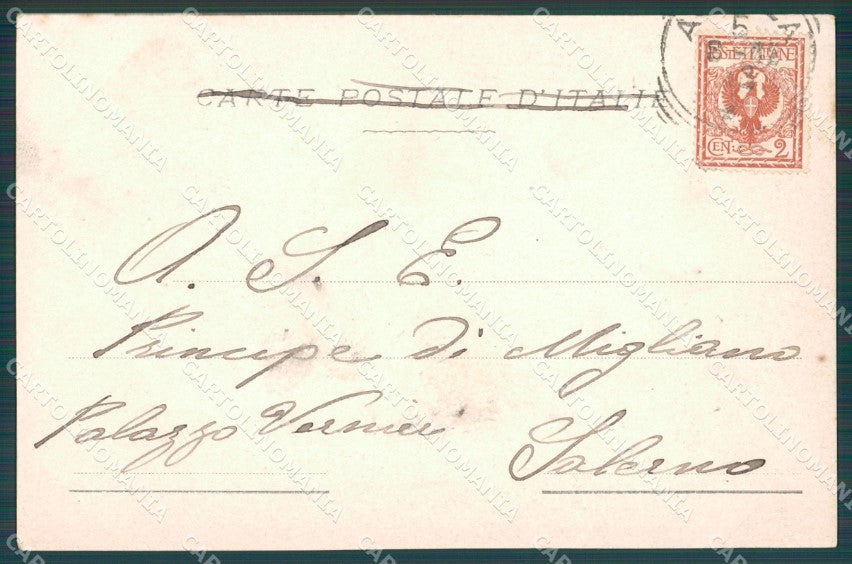 CARTE POSTALE D'ITALIE
POSTE ITALIANE
CEN. 2
A. S. E.
Principe di Migliano
Palazzo Vernieri
Salerno
CARTOLINOMANIA